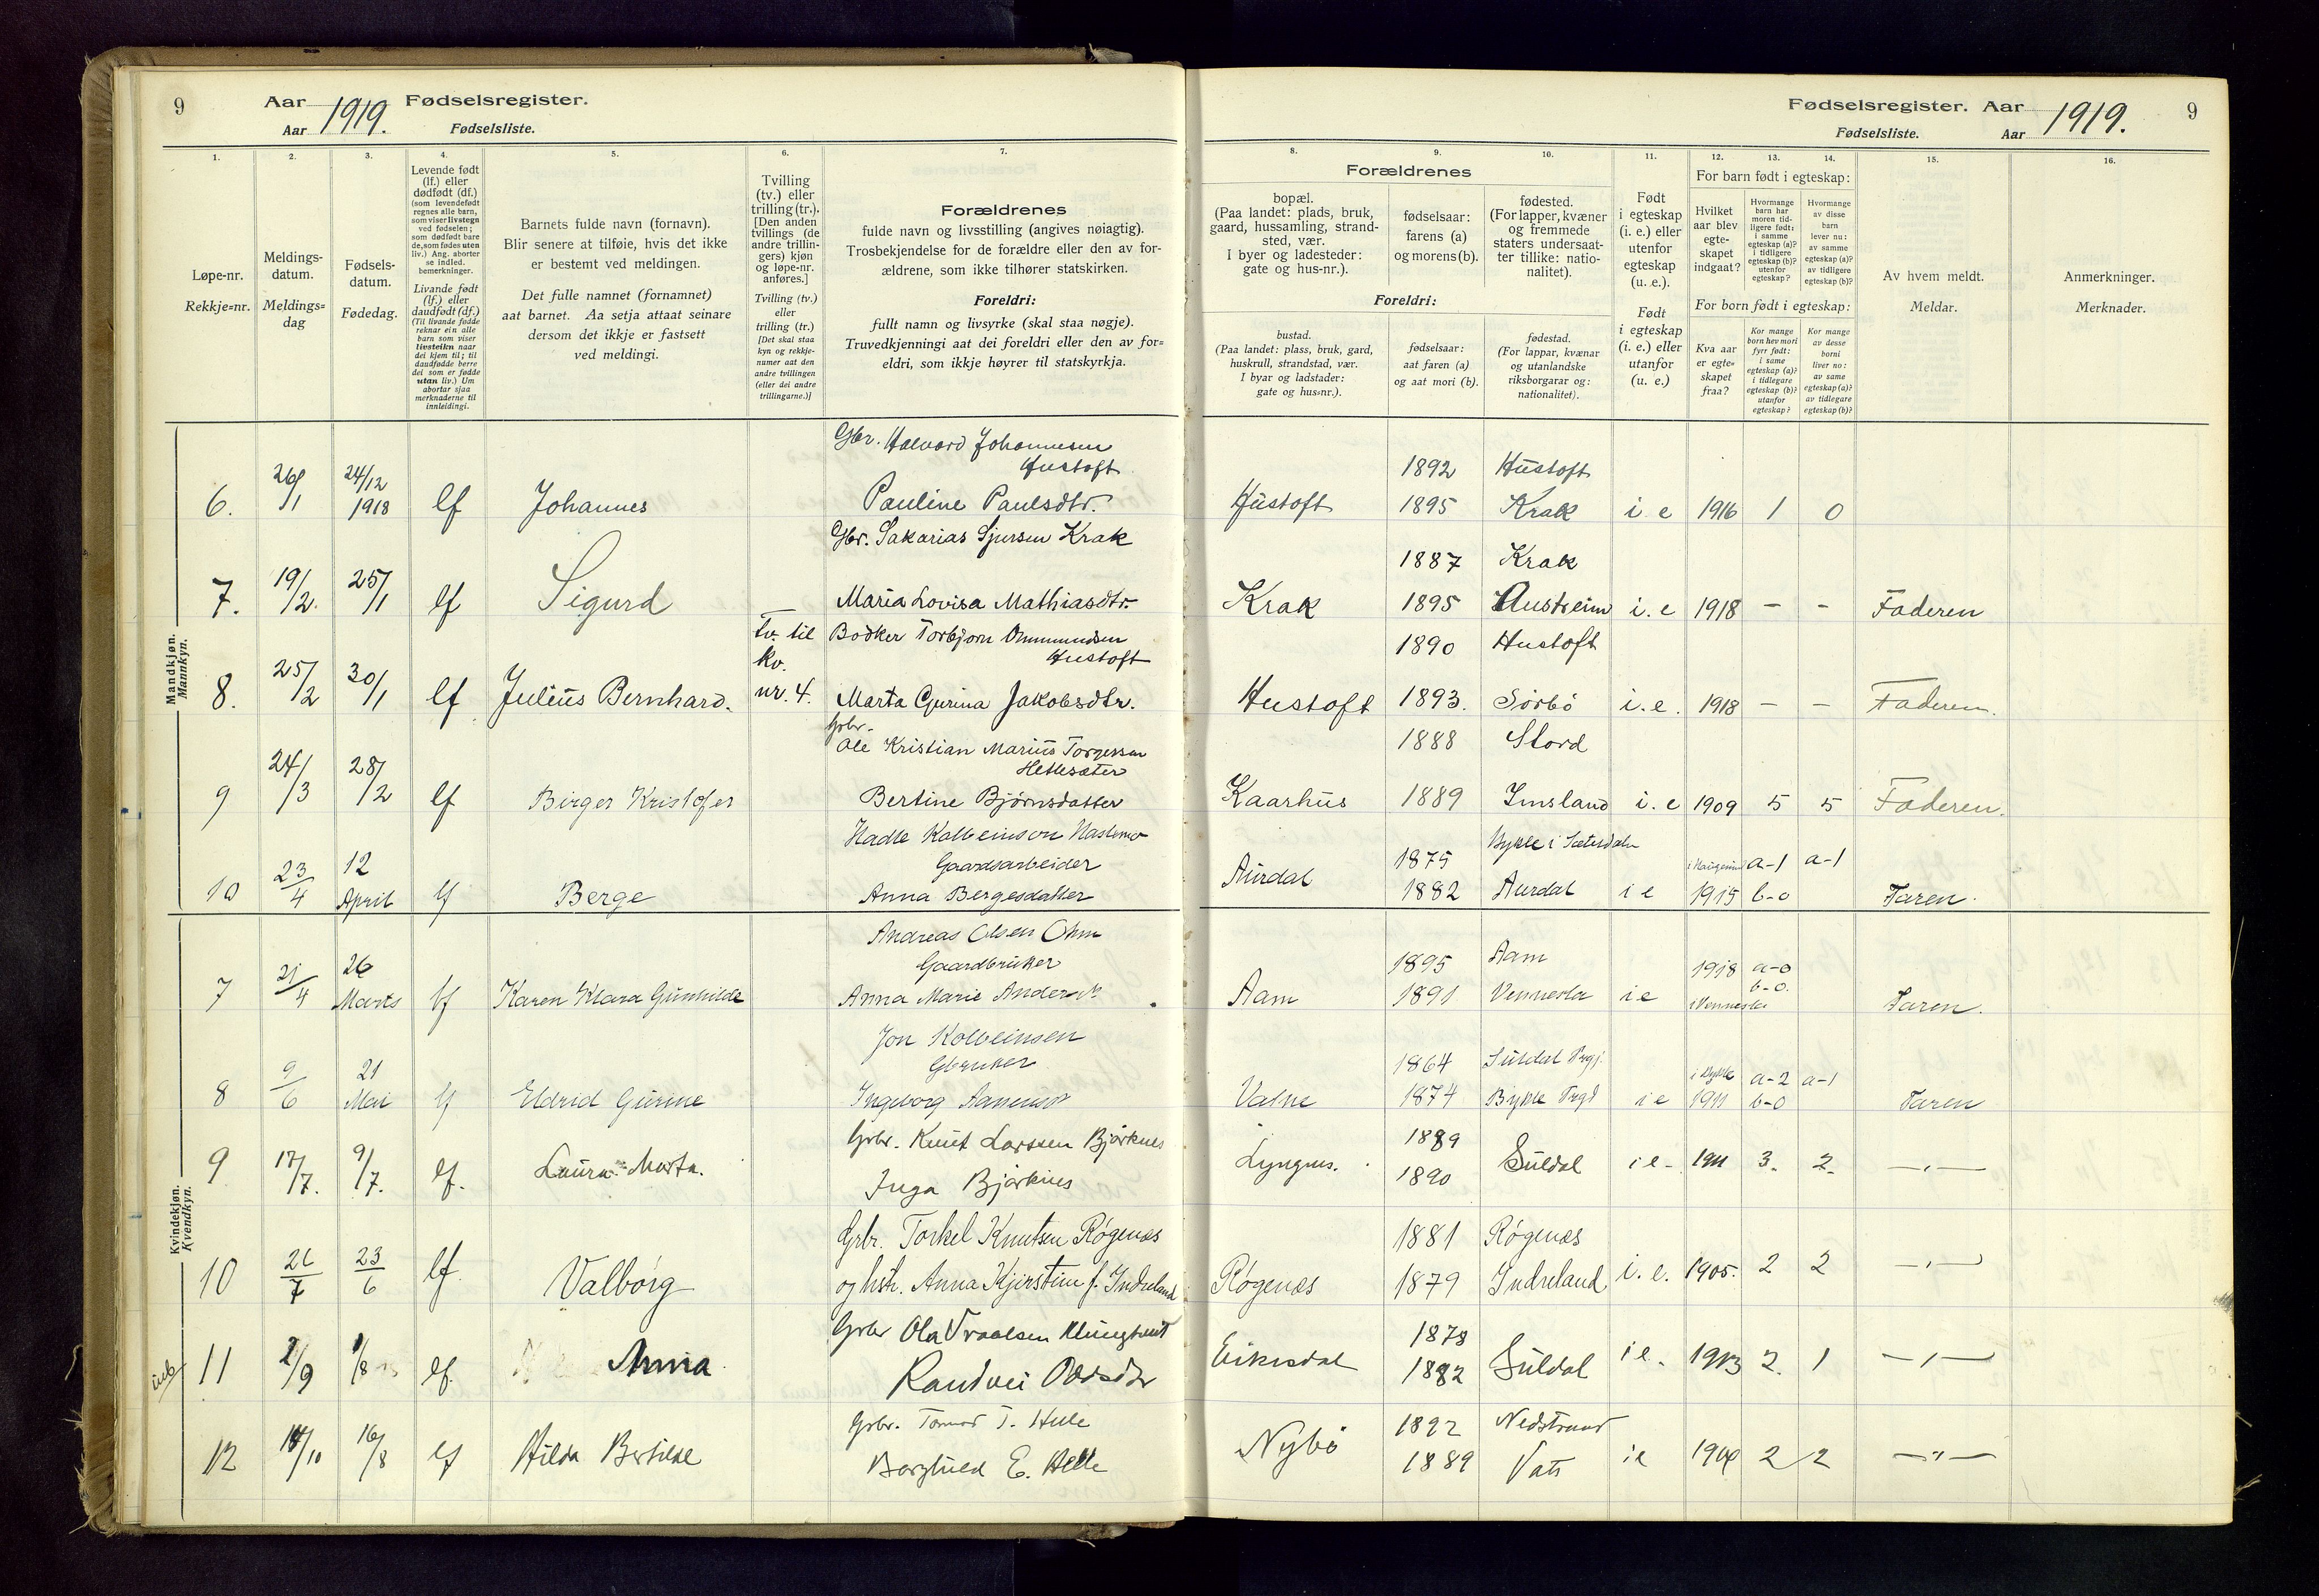 9
Aar 1919. Fødselsregister.
Aar Fødselsliste.
Fødselsregister. Aar 1919. 9
Fødselsliste. Aar
1. 2. 3. 4. 5. 6. 7.
Løpe-nr.
Rekkje=nr.
Meldings-
datum.
Meldings=
dag
Fødsels-
datum.
Fødedag.
Levende født
(lf.) eller
dødfødt (df.)
(som levendefødt
regnes alle barn,
som viser livstegn
ved fødselen;
som dødfødt bare
de, som fødes uten
liv.) Ang. aborter
se indled.
bemerkninger.
Livande født
(lf.) eller
daudfødt (df.)
(Til livande fødde
reknar ein alle
barn som viser
livsteikn naar
dei kjem til; til
daudfødde berre
dei som er fødde
utan liv.) Um
abortar sjaa
merknaderne til
innleidingi.
Barnets fulde navn (fornavn).
Blir senere at tilføie, hvis det ikke
er bestemt ved meldingen.
Det fulle namnet (fornamnet)
aat barnet. Aa setja attaat seinare
dersom det ikkje er fastsett
ved meldingi.
Tvilling
(tv.) eller
trilling (tr.).
[Den anden
tvillings (de
andre trillin-
gers) kjøn
og løpe-nr.
anføres.]
Tvilling (tv.)
eller
trilling (tr.)
[Det skal staa
kyn og rekkje-
numer aat den
andre tvillingen
(eller dei andre
trillingarne.)]
Forældrenes
fulde navn og livsstilling (angives nøiagtig).
Trosbekjendelse for de forældre eller den av for-
ældrene, som ikke tilhører statskirken.
Foreldri:
fullt namn og livsyrke (skal staa nøgje).
Truvedkjenningi aat dei foreldri eller den av for=
eldri, som ikkje høyrer til statskyrkja.
8. 9. 10. 11. 12. 13. 14. 15. 16.
Forældrenes
bopæl.
(Paa landet: plads, bruk,
gaard, hussamling, strand-
sted, vær.
I byer og ladesteder:
gate og hus-nr.).
Foreldri:
bustad.
(Paa landet: plass, bruk, gard,
huskrull, strandstad, vær.
I byar og ladstader:
gate og hus=nr.).
fødselsaar:
farens (a)
og morens (b).
fødselsaar:
aat faren (a)
og aat mori (b).
fødested.
(For lapper, kvæner
og fremmede
staters undersaat-
ter tillike: natio-
nalitet).
fødestad.
(For lappar, kvænar
og utanlandske
riksborgarar og:
nationalitet).
Født
i egteskap
(i. e.) eller
utenfor
egteskap
(u. e.).
Født
i egteskap
(i. e.) eller
utanfor
(u. e.)
For barn født i egteskap:
Hvilket
aar blev
egte-
skapet
indgaat?
Hvormange
barn har
moren tid-
ligere født:
i samme
egteskap (a)?
i tidligere
egteskap (b)?
utenfor
egteskap?
Hvormange
av disse
barn
lever nu:
av samme
egteskap (a)?
av tidligere
egteskap (b)?
For born født i egteskap:
Kva aar
er egte-
skapet
fraa?
Kor mange
born hev mori
fyrr født:
i same
egteskap (a)?
i tidlegare
egteskap (b)?
utanfor
egteskap?
Kor mange
av desse
borni
liver no:
av same
egteskap (a)?
av tidlegare
egteskap (b)?
Av hvem meldt.
Meldar.
Anmerkninger.
Merknader.
Mandkjøn.
Mannkyn.
Gbr. Halvard Johannesen
Hustoft 1892 Hustoft
6. 26/1 24/12 1918 lf Johannes Pauline Paulsdtr. Hustoft 1895 Krak i e 1916 1 0
Gbr. Sakarias Sjursen Krak 1887 Krak
7. 19/2. 25/1 lf Sigurd Maria Lovisa Mathiasdtr. Krak 1895 Austreim i. e 1918 - - Faderen
tv. til Bødker Torbjørn Ommundsen
kv. Hustoft 1890 Hustoft
8. 25/2 30/1 lf Julius Bernhard. nr. 4. Marta Gurina Jakobsdtr. Hustoft 1893. Sørbö i. e. 1918 - - Faderen.
Gbr.
Ole Kristian Marius Torgersen
Hettesæter 1888 Stord
9 24/3 28/2 lf Birger Kristofer Bertine Bjørnsdatter Kaarhus 1889 Imsland i. e 1909 5 5 Faderen.
Hadle Kolbeinson
Gaardsarbeider 1875 Bykle i Sætesdalen
10 23/4 12 April lf Berge Anna Bergesdatter Aurdal 1882 Aurdal i e i Haugesund 1915 a-1 b-0 a-1 Faren.
Kvindekjøn.
Kvendkyn.
Andreas Olsen Ohm
Gaardbruker 1895 Aam
7 21/4 26 Marts lf Karen Klara Gunhilde Anna Marie Anders Aam 1891 Vennesla i e 1918 i Vennesla a-0 b-0. Faren.
Jon Kolbeinsen
Gbruker 1864 Suldal Prgj.
8 9/6 21 Mai lf Eldrid Gurine Ingeborg Valne 1874 Bykle Prgj i e i Bykle 1911 a-2 b-0 a-1 Faren
Grbr. Knut Larssen Bjørknes 1889
9 17/7. 9/7. lf. Laura Marta. Inga Bjørknes Lyngnes. 1890 Suldal i e 1911 3. 2. -"-
Grbr. Torkel Knutsen Røgenæs 1881 Røgenæs
10 26/7 23/6 lf. Valborg og hstr. Anna Kjerstine f. Indreland Røgenæs 1879 Indreland i. e. 1905. 2 2 -"-
Grbr Ola Vraalsen Klungtveit 1878
11 2/9 1/8 lf. Anna Randvei Oddsdtr Eikesdal 1882 Suldal i e. 1913 2. 1 -"-
Grbr. Tormod T. Helle 1892 Nedstrand
12 14/10 16/8 lf Hilda Bertilde Borghild E. Helle Nybö 1889 Vats i e 2 2 -"-